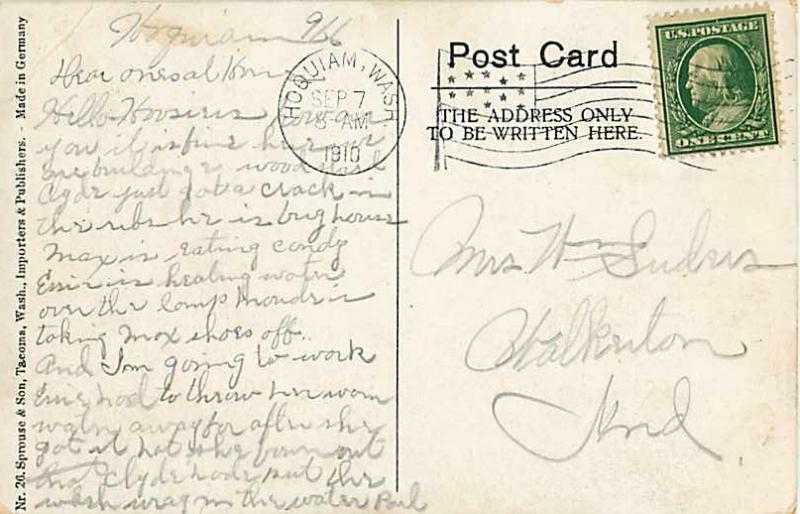 Hoquiam 9/6
Dear ones at Home
Hello Hoosiers how are
you it is fine here we
are building a wood shed
Clyde just got a crack in
the ribs he is bughouse
Max is eating candy
Essie is heating water
over the lamp Maude is
taking Max shoes off..
And I'm going to work
Essie had to throw her warm
water away for after she
got it hot she found out
that Clyde had put the
wash wrag in the water Paul
HOQUIAM, WASH.
SEP 7
8 AM
1910
Post Card
THE ADDRESS ONLY
TO BE WRITTEN HERE.
U.S. POSTAGE
ONE CENT
Mrs Wm Suders
Walkerton
Ind
Nr. 26. Sprouse & Son, Tacoma, Wash., Importers & Publishers. - Made in Germany